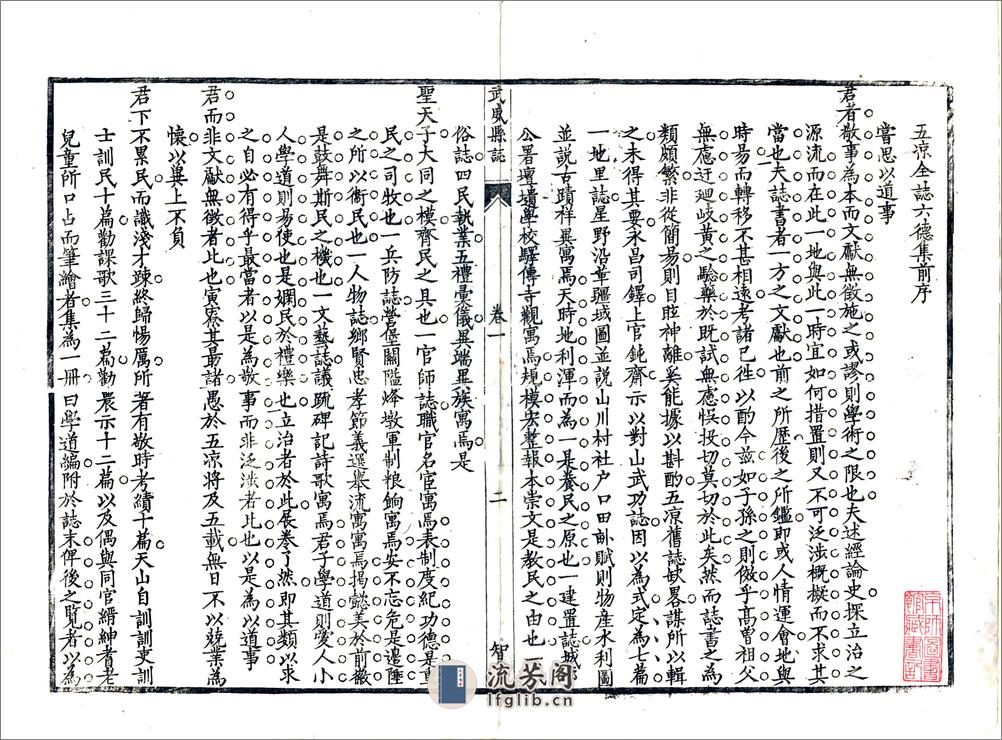 五凉全誌六德集前序
當思以道事
君者敬事為本而文獻無徵施之或謬則學術之限也夫述經論史探立治之
源流而在此一地與此一時宜如何措置則又不可泛涉概擬而不求其
當也夫誌書者一方之文獻也前之所歷後之所鑑即或人情運會地與
時易而轉移不甚相遠考諸已徃以酌今茲如子孫之則倣乎高曾祖父
無慮迂廻岐黄之騐藥於既試無慮悞投切莫切於此矣然而誌書之為
類頗繁非從簡易則目眩神離奚能據以斟酌五凉舊誌缺畧謀所以輯
之未得其要永昌司鐸上官鈍齋示以對山武功誌因以為式定為七篇
一地里誌星野沿革疆域圖並說山川村社户口田畆賦則物產水利圖
並說古蹟祥異寓焉天時地利渾而為一是養民之原也一建置誌城郭
公署壇壝學校驛傳寺觀寓焉規模宏整報本崇文是教民之由也一風
武威縣誌
卷一
二
智
俗誌四民執業五禮彙儀異端畢族寓焉是
聖天子大同之模齊民之具也一官師誌職官名宦寓焉表制度紀功德是重
民之司牧也一兵防誌營堡關隘烽墩軍制粮餉寓焉安不忘危是邊陲
之所以衛民也一人物誌鄉賢忠孝節義選舉流寓寓焉揭懿美於前徽
是鼓舞斯民之機也一文藝誌議疏碑記詩歌寓焉君子學道則愛人小
人學道則易使也是嫺民於禮樂也立治者於此展卷了然即其類以求
之自必有得乎最當者以是為敬事而非泛濫者此也以是為以道事
君而非文獻無徵者此也寅寮其最諸愚於五凉將及五載無日不以兢業為
懷以畢上不負
君下不累民而識淺才疎終歸惕厲所著有敬時考續十篇天山自訓訓吏訓
士訓民十篇勸課歌三十二篇勸農示十二篇以及偶與同官縉紳耆老
兒童所口占而筆繪者集為一冊曰學道編附於誌末俾後之覧者以為
流芳阁
lfglib.cn